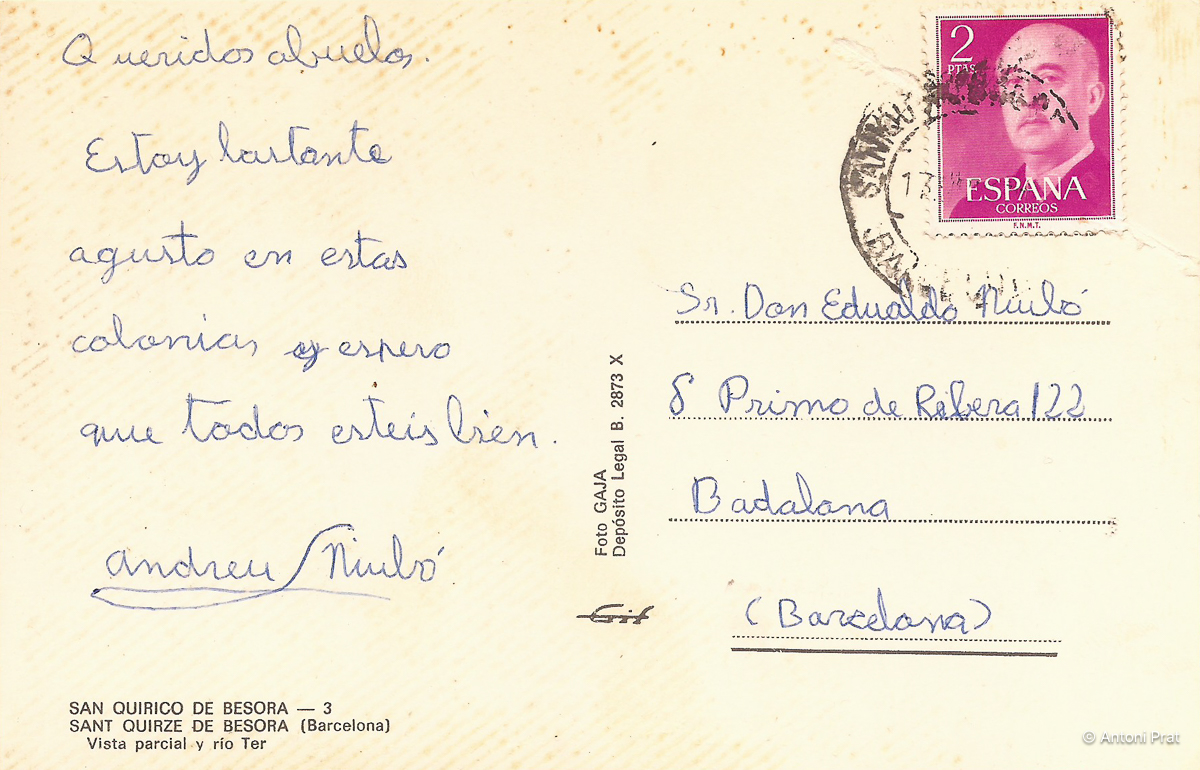 Queridos abuelos.
Estoy bastante
agusto en estas
colonias y espero
que todos estéis bien.
Andreu Niubó
SAN QUIRICO DE BESORA — 3
SANT QUIRZE DE BESORA (Barcelona)
Vista parcial y río Ter
Foto GAJA
Depósito Legal B. 2873 X
Git
2
PTAS
ESPAÑA
CORREOS
F.N.M.T.
Sr. Don Edualdo Niubó
Primo de Ribera 122
Badalona
(Barcelona)
© Antoni Prat